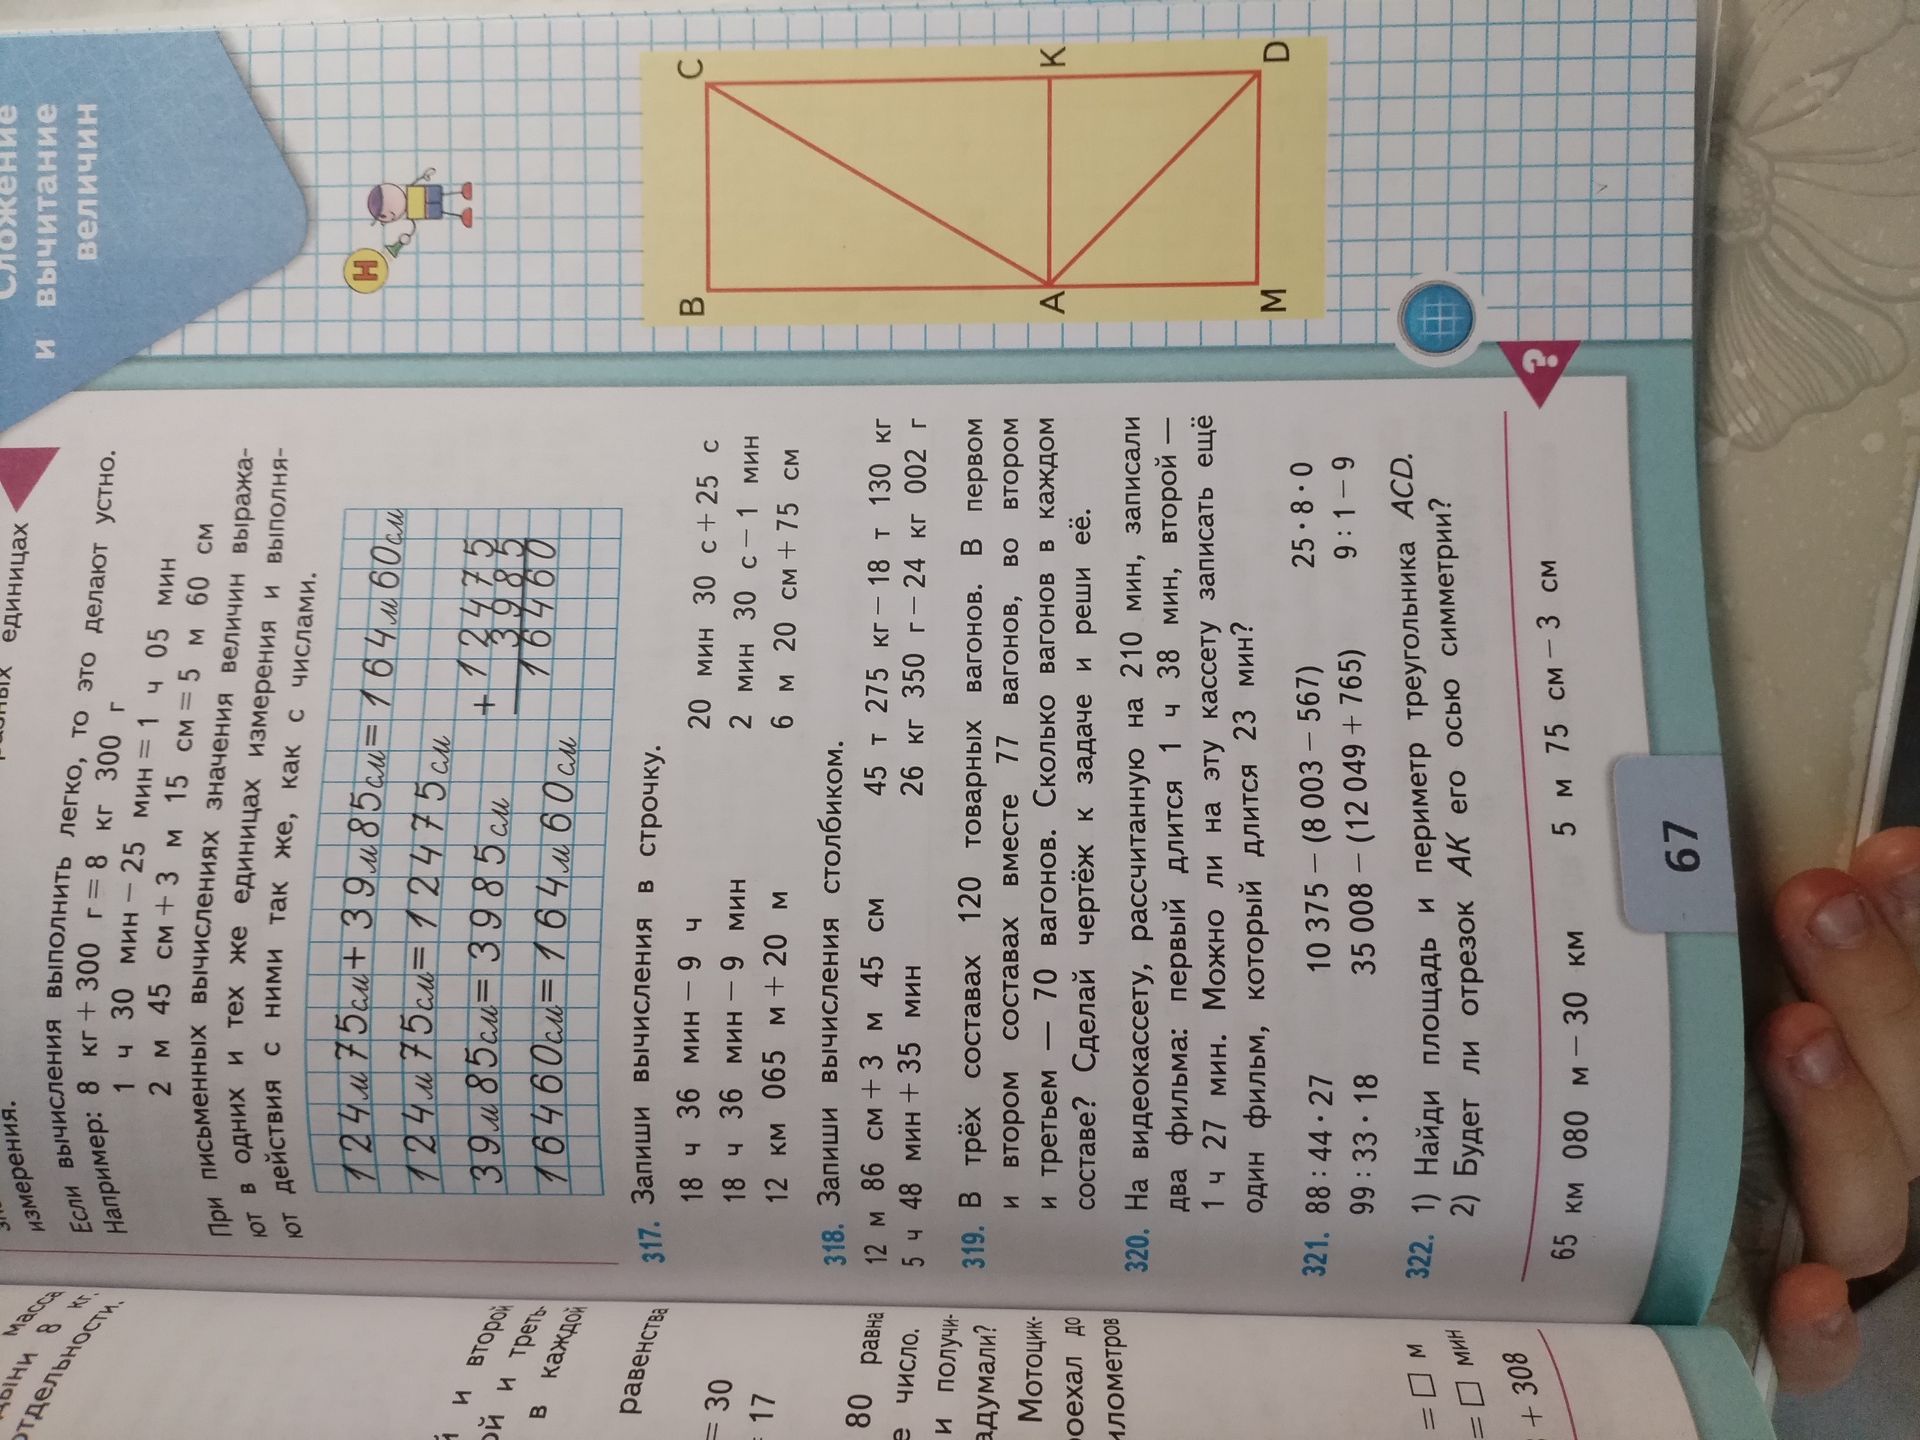 Сложение
и вычитание
величин
единицах
измерения.
Если вычисления выполнить легко, то это делают устно.
Например: 8 кг + 300 г = 8 кг 300 г
1 ч 30 мин − 25 мин = 1 ч 05 мин
2 м 45 см + 3 м 15 см = 5 м 60 см
При письменных вычислениях значения величин выража-
ют в одних и тех же единицах измерения и выполня-
ют действия с ними так же, как с числами.
124м75см+39м85см=164м60см
124м75см=12475см
39м85см=3985см
16460см=164м60см
+12475
3985
16460
Н
317. Запиши вычисления в строчку.
18 ч 36 мин − 9 ч 20 мин 30 с + 25 с
18 ч 36 мин − 9 мин 2 мин 30 с − 1 мин
12 км 065 м + 20 м 6 м 20 см + 75 см
318. Запиши вычисления столбиком.
12 м 86 см + 3 м 45 см 45 т 275 кг − 18 т 130 кг
5 ч 48 мин + 35 мин 26 кг 350 г − 24 кг 002 г
319. В трёх составах 120 товарных вагонов. В первом
и втором составах вместе 77 вагонов, во втором
и третьем — 70 вагонов. Сколько вагонов в каждом
составе? Сделай чертёж к задаче и реши её.
320. На видеокассету, рассчитанную на 210 мин, записали
два фильма: первый длится 1 ч 38 мин, второй —
1 ч 27 мин. Можно ли на эту кассету записать ещё
один фильм, который длится 23 мин?
321. 88 : 44 · 27 10 375 − (8 003 − 567) 25 · 8 · 0
99 : 33 · 18 35 008 − (12 049 + 765) 9 : 1 − 9
322. 1) Найди площадь и периметр треугольника ACD.
2) Будет ли отрезок AK его осью симметрии?
B
C
A
K
M
D
?
65 км 080 м − 30 км 5 м 75 см − 3 см
67
масса
8 кг.
отдельности.
и второй
и треть-
в каждой
равенства
= 30
17
80 равна
число.
и получи-
Мотоцик-
до
= □ м
= □ мин
+ 308